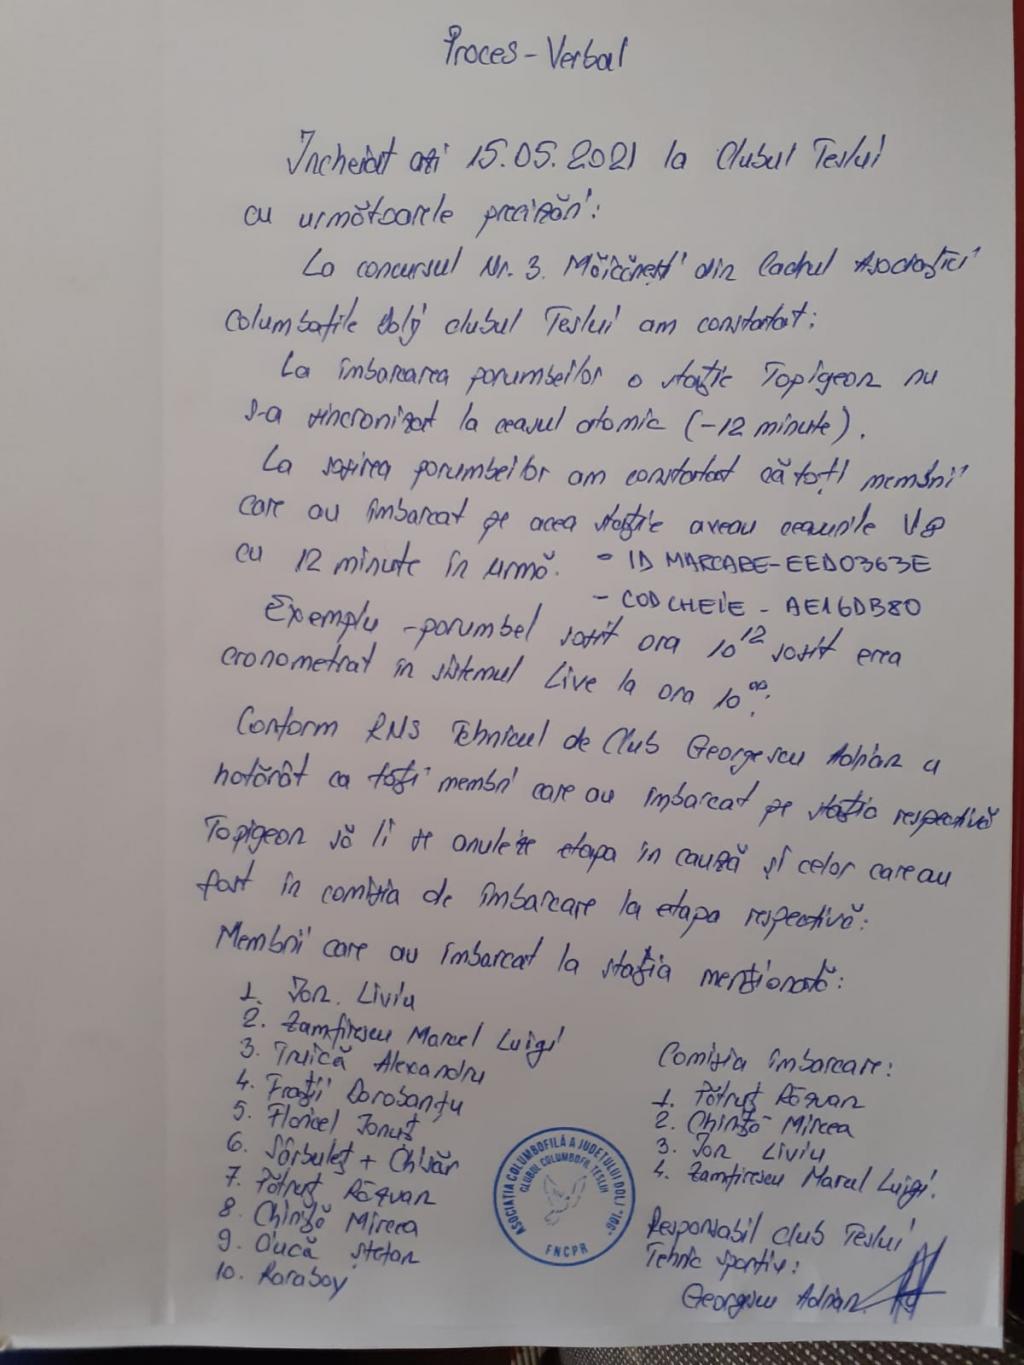 Proces-Verbal
Încheiat azi 15.05.2021 la Clubul Teslui
cu următoarele precizări:
La concursul Nr. 3. Măicănești din Cadrul Asociației
Columbofile Dolj clubul Teslui am constatat:
La îmbarcarea porumbeilor o stație Topigeon nu
s-a sincronizat la ceasul atomic (-12 minute).
La sosirea porumbeilor am constatat că toți membrii
care au îmbarcat pe acea stație aveau ceasurile V8
cu 12 minute în urmă. - ID MARCARE-EED0363E
- COD CHEIE - AE16DB80
Exemplu -porumbel sosit ora 10 12 sosit era
cronometrat în sistemul Live la ora 10 00.
Conform RNS Tehnicul de Club Georgescu Adrian a
hotărât ca toți membri care au îmbarcat pe stația respectivă
Topigeon să li se anuleze etapa în cauză și celor care au
fost în comisia de îmbarcare la etapa respectivă:
Membrii care au îmbarcat la stația menționată:
1. Ion. Liviu
2. Zamfirescu Marcel Luigi
3. Truică Alexandru
4. Frații Dorobanțu
5. Floricel Ionuț
6. Sârbuleț + Chisăr
7. Pătruț Răzvan
8. Chință Mircea
9. Ducă Ștefan
10. Karaboy
Comisia îmbarcare:
1. Pătruț Răzvan
2. Chință Mircea
3. Ion Liviu
4. Zamfirescu Marcel Luigi.
ASOCIAȚIA COLUMBOFILĂ A JUDEȚULUI DOLJ "106"
CLUBUL COLUMBOFIL TESLUI
FNCPR
Responsabil Club Teslui
Tehnic sportiv:
Georgescu Adrian